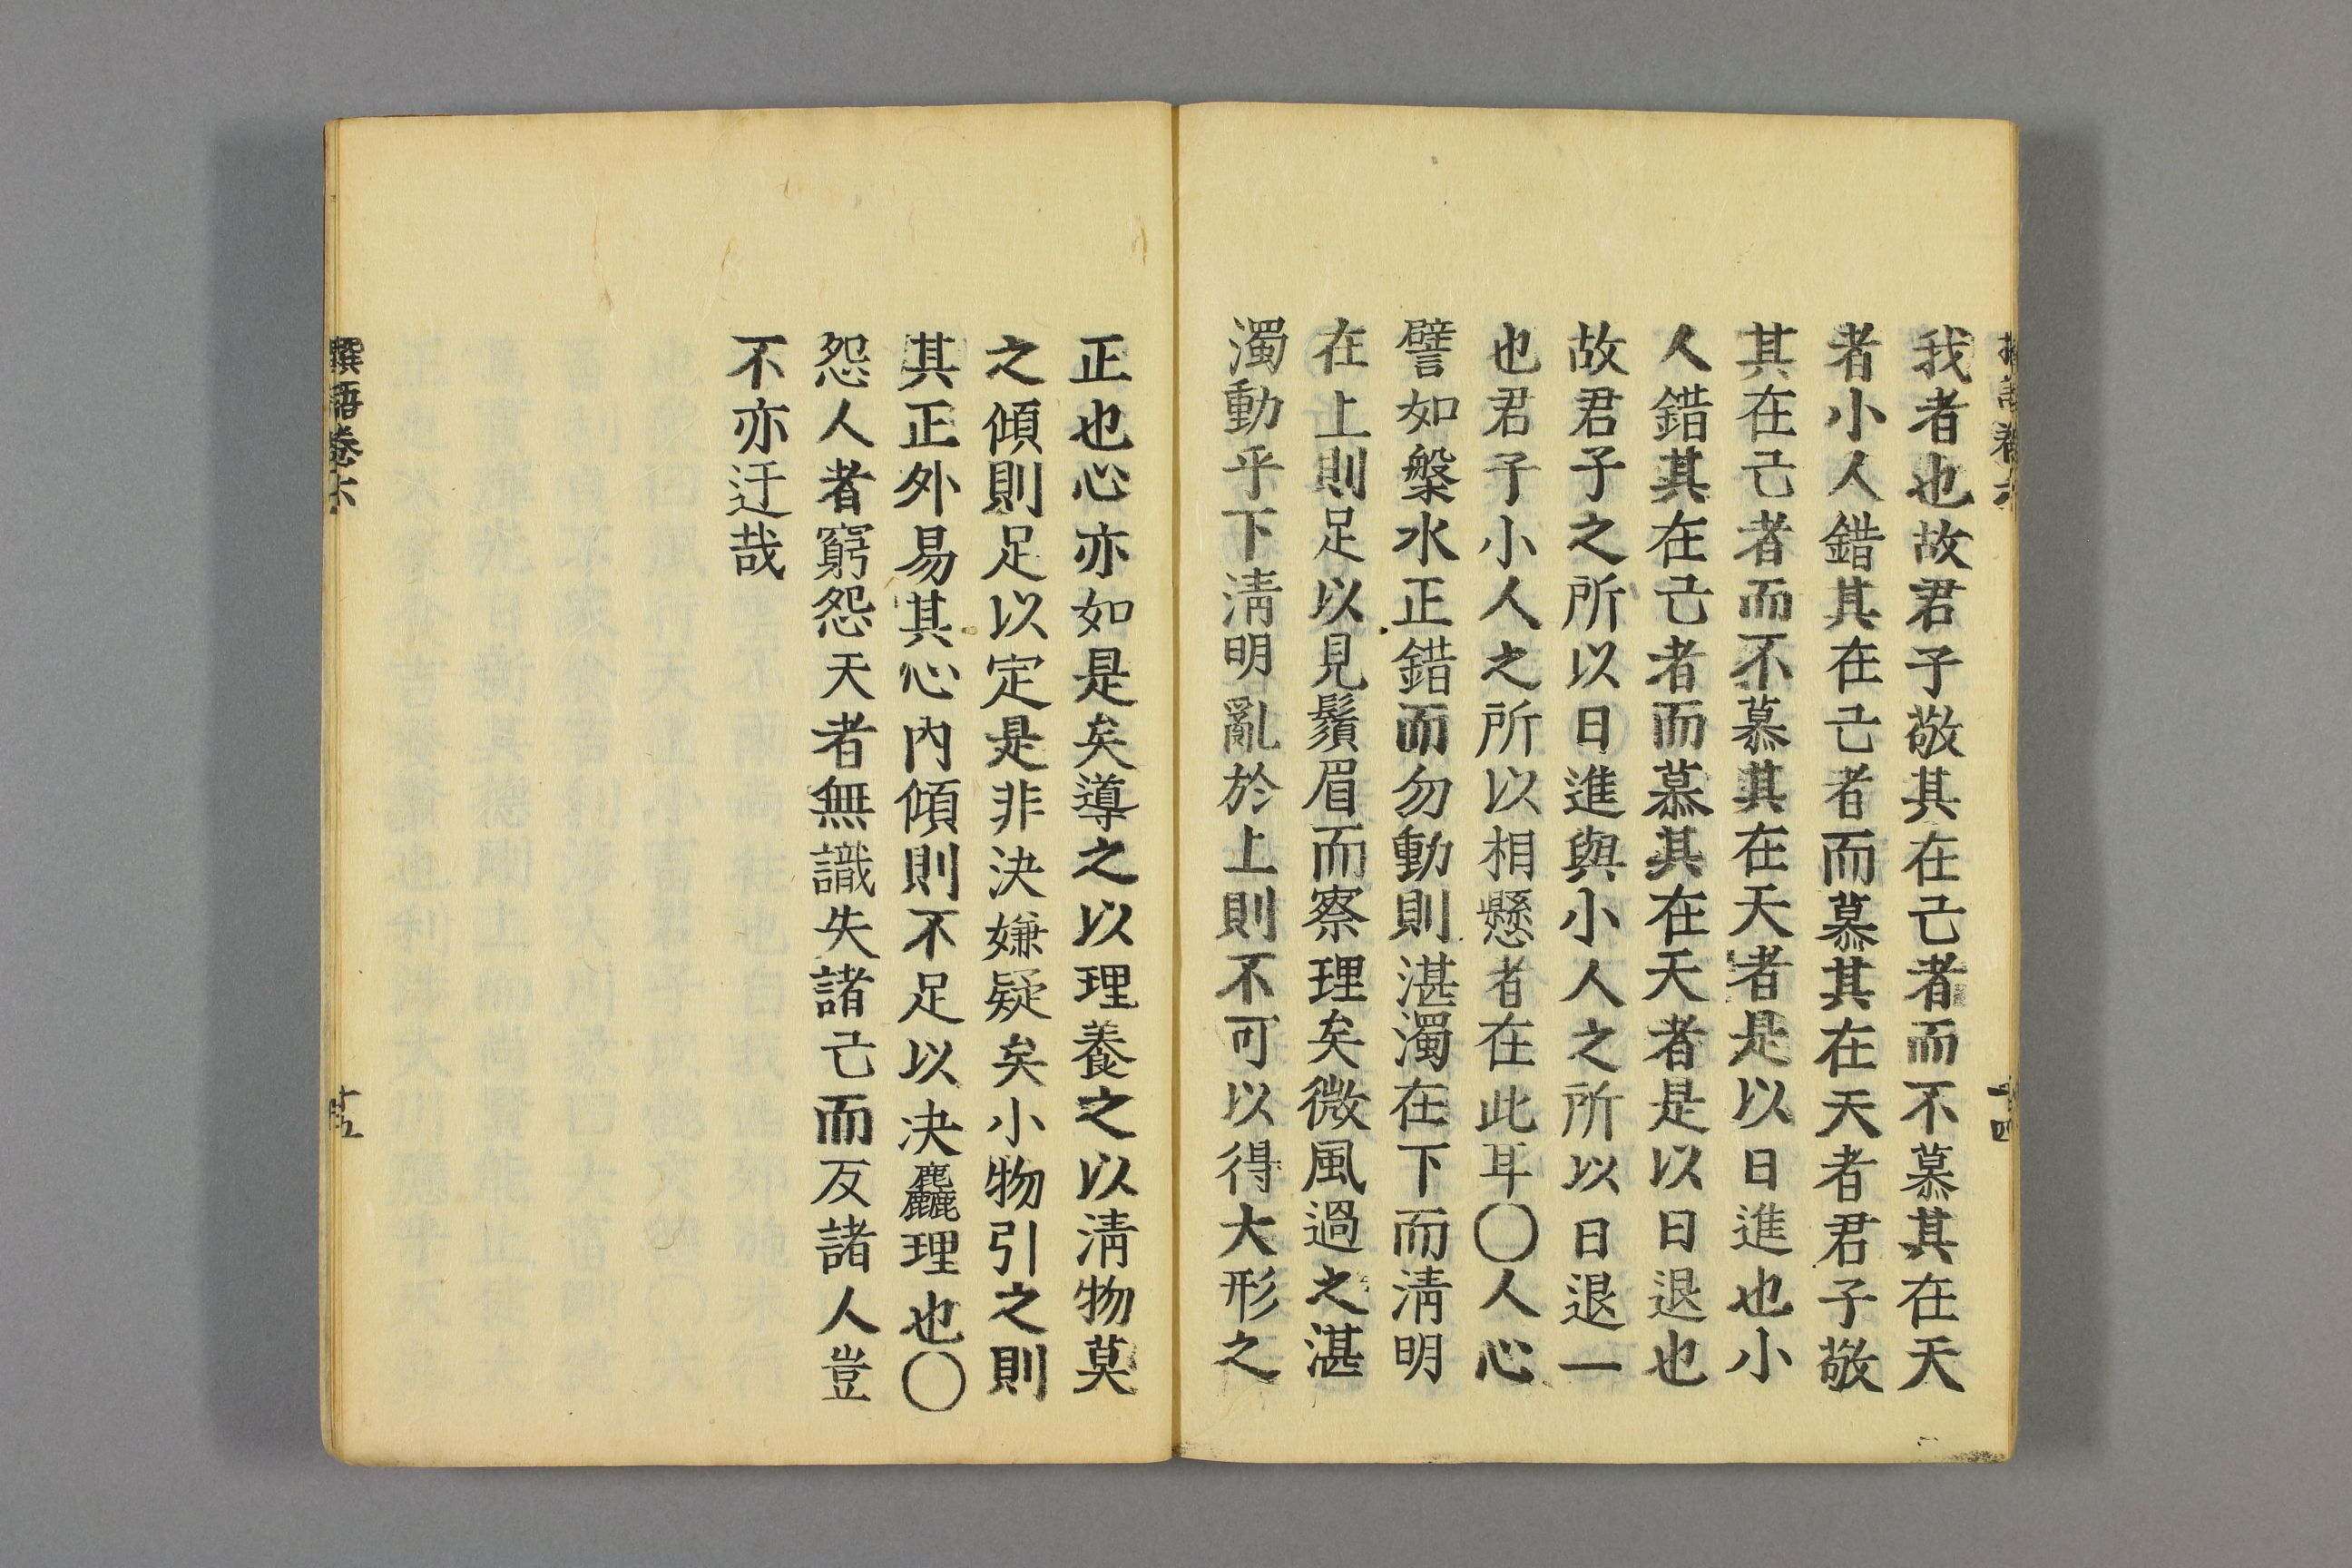 我者也故君子敬其在己者而不慕其在天
者小人錯其在己者而慕其在天者君子敬
其在己者而不慕其在天者是以日進也小
人錯其在己者而慕其在天者是以日退也
故君子之所以日進與小人之所以日退一
也君子小人之所以相懸者在此耳〇人心
譬如槃水正錯而勿動則湛濁在下而淸明
在上則足以見鬚眉而察理矣微風過之湛
濁動乎下淸明亂於上則不可以得大形之
正也心亦如是矣導之以理養之以淸物莫
之傾則足以定是非決嫌疑矣小物引之則
其正外易其心內傾則不足以决麤理也〇
怨人者窮怨天者無識失諸己而反諸人豈
不亦迂哉
撰語卷六
十五